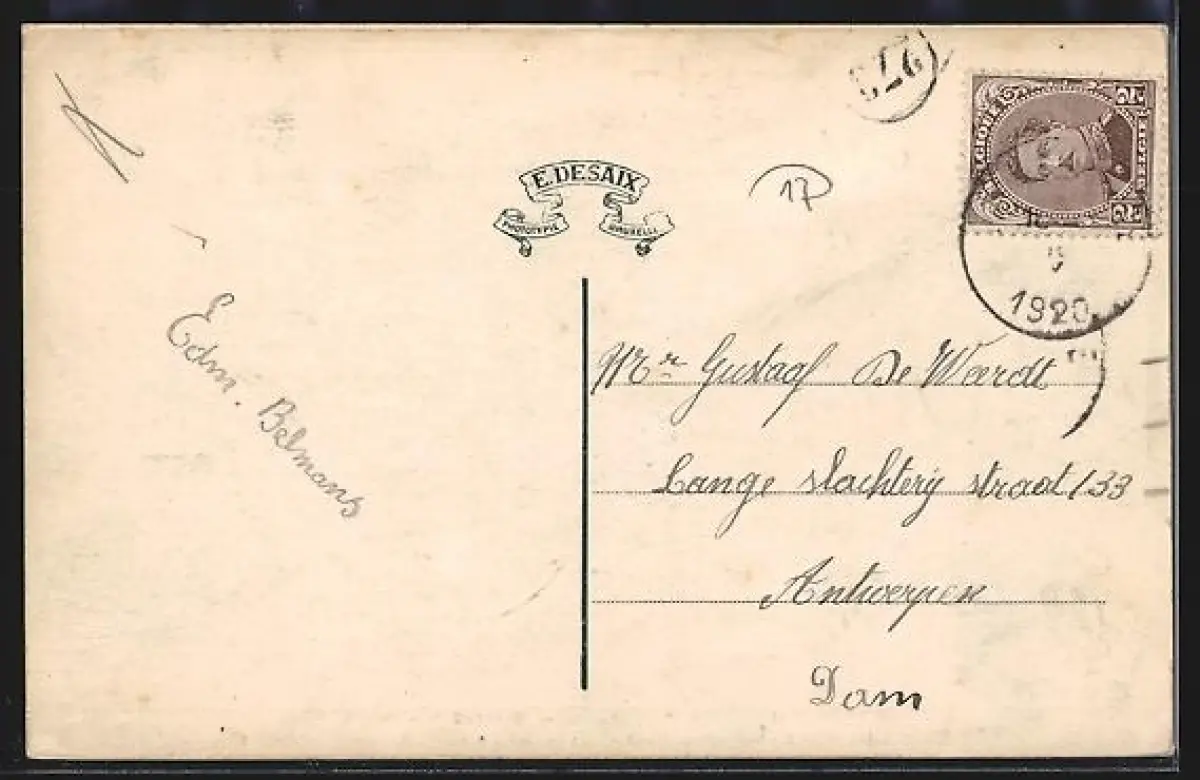 E. DESAIX
PHOTOTYPIE BRUXELLES
17
BELGIQUE
BELGIË
1920
Edm. Belmans
Mr Gustaaf De Weerdt
Lange slachterij straat 133
Antwerpen
Dam